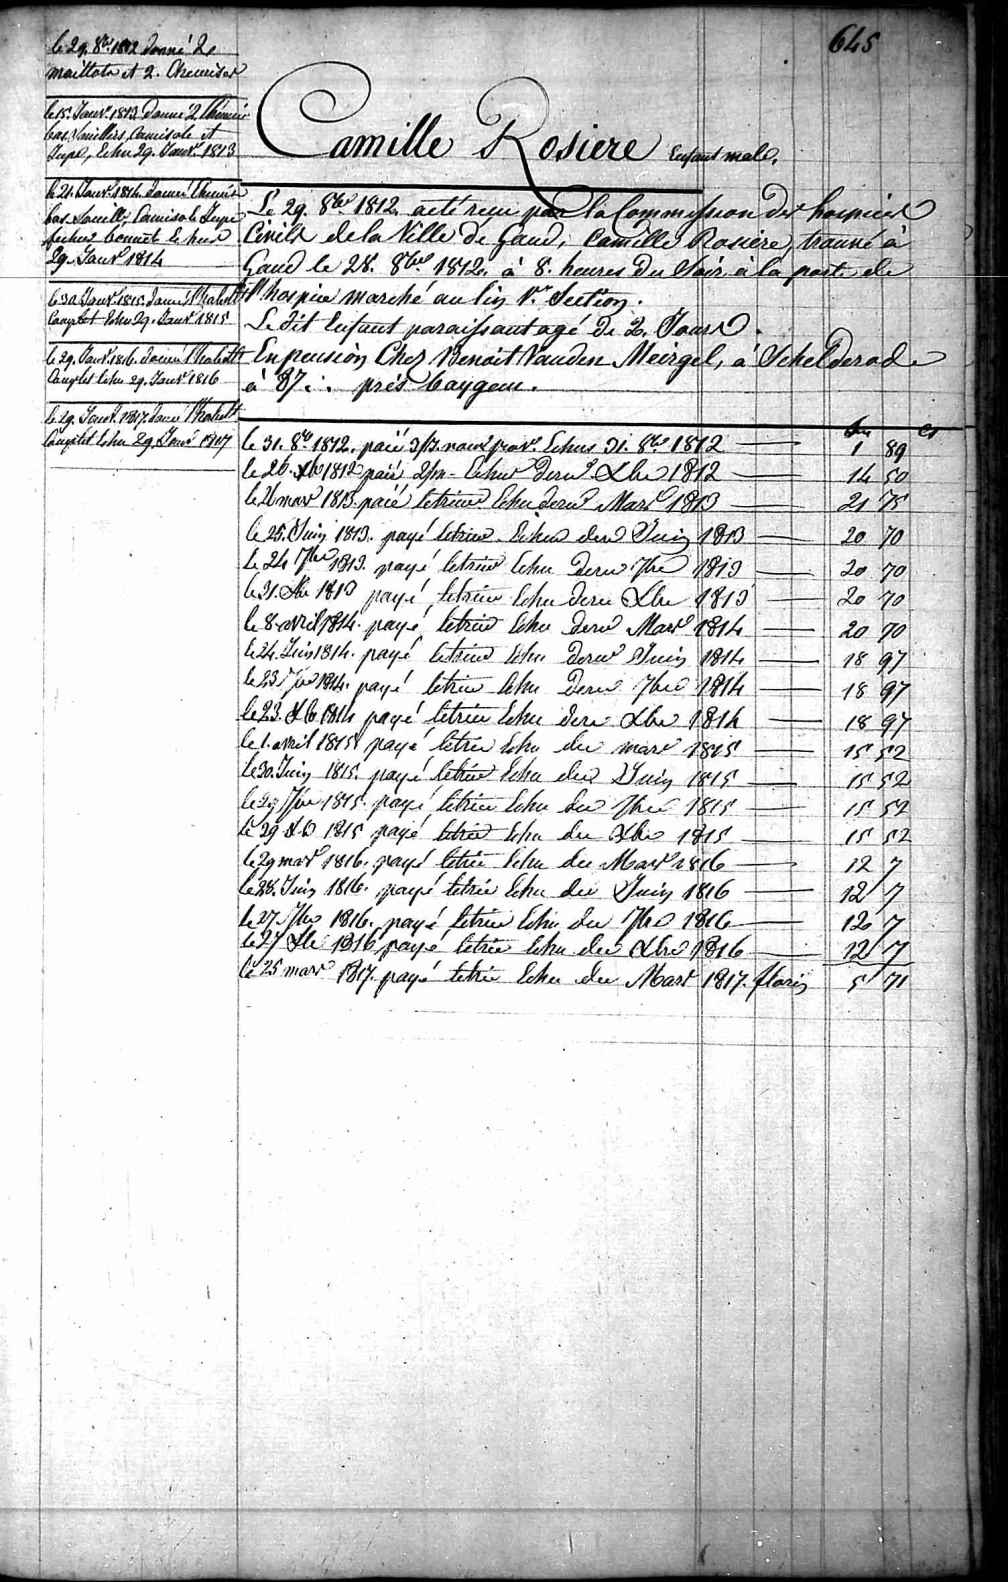 645
le 29. 8bre 1812 donné 2
maillots et 2. Chemises
le 15. Janvr. 1813 donné 2 Chemis
bas, Souilliers, Camisole et
Jupe, Echu 29. Janvr. 1813
le 21. Janvr. 1814. donné Chemis
bas Souilli. Camisole Jupe
fichu bonnet Echus
29. Janvr 1814
le 30 Janvr. 1815. donné l'habillt
Complet Echu 29. Janvr 1815
le 29. Janvr. 1816. donné l'habillt
Complet Echu 29. Janvr 1816
le 29. Janvr. 1817. donné l'habillt
Complet Echu 29. Janvr 1817
Camille Rosiere Enfant male.
Le 29. 8bre 1812. a été reçu par la Commission des hospices
Civils de la Ville de Gand, Camille Rosiere, trouvé à
Gand le 28. 8bre 1812. à 8. heures du Soir à la porte de
l'hospice marché au lin 1re Section.
Le dit Enfant paraissant agé de 2. Jours.
En pension Chez Benoit Vanden Meirgel, à Schelderode
à 87. : près baygem.
frs cs
le 31. 8bre 1812. paié 3/m. nouv. Echus 31. 8bre 1812 — 1 89
le 26. Xb 1812 paié 2/m - Echus dernr Xbre 1812 — 14 50
le 26 mars 1813. paié letrim Echu dernr Mars 1813 — 21 75
le 25. Juin 1813. payé letrim. Echu dern Juin 1813 — 20 70
le 24 7bre 1813. payé letrim Echu dern 7bre 1813 — 20 70
le 31. Xbre 1813 payé letrim Echu dern Xbre 1813 — 20 70
le 8 avril 1814. payé letrim Echu dern Mars 1814 — 20 70
le 24. Juin 1814. payé letrim Echu dernr Juin 1814 — 18 97
le 23 7bre 1814. payé letrim Echu dern 7bre 1814 — 18 97
le 23. Xb 1814 payé letrim Echu dern Xbre 1814 — 18 97
le 1. avril 1815 payé letrim Echu der mars 1815 — 15 52
le 30. Juin 1815. payé letrim Echu der Juin 1815 — 15 52
le 29 7bre 1815. payé letrim Echu der 7bre 1815 — 15 52
le 29 Xb 1815 payé letrim Echu der Xbre 1815 — 15 52
le 29 mars 1816. payé letrim Echu der Mars 1816 — 12 7
le 28. Juin 1816. payé letrim Echu der Juin 1816 — 12 7
le 27. 7bre 1816. payé letrim Echu der 7bre 1816 — 12 7
le 27 Xbre 1816 payé letrim Echu der Xbre 1816 — 12 7
le 25 mars 1817. payé letrim Echu der Mars 1817. florins 5 71